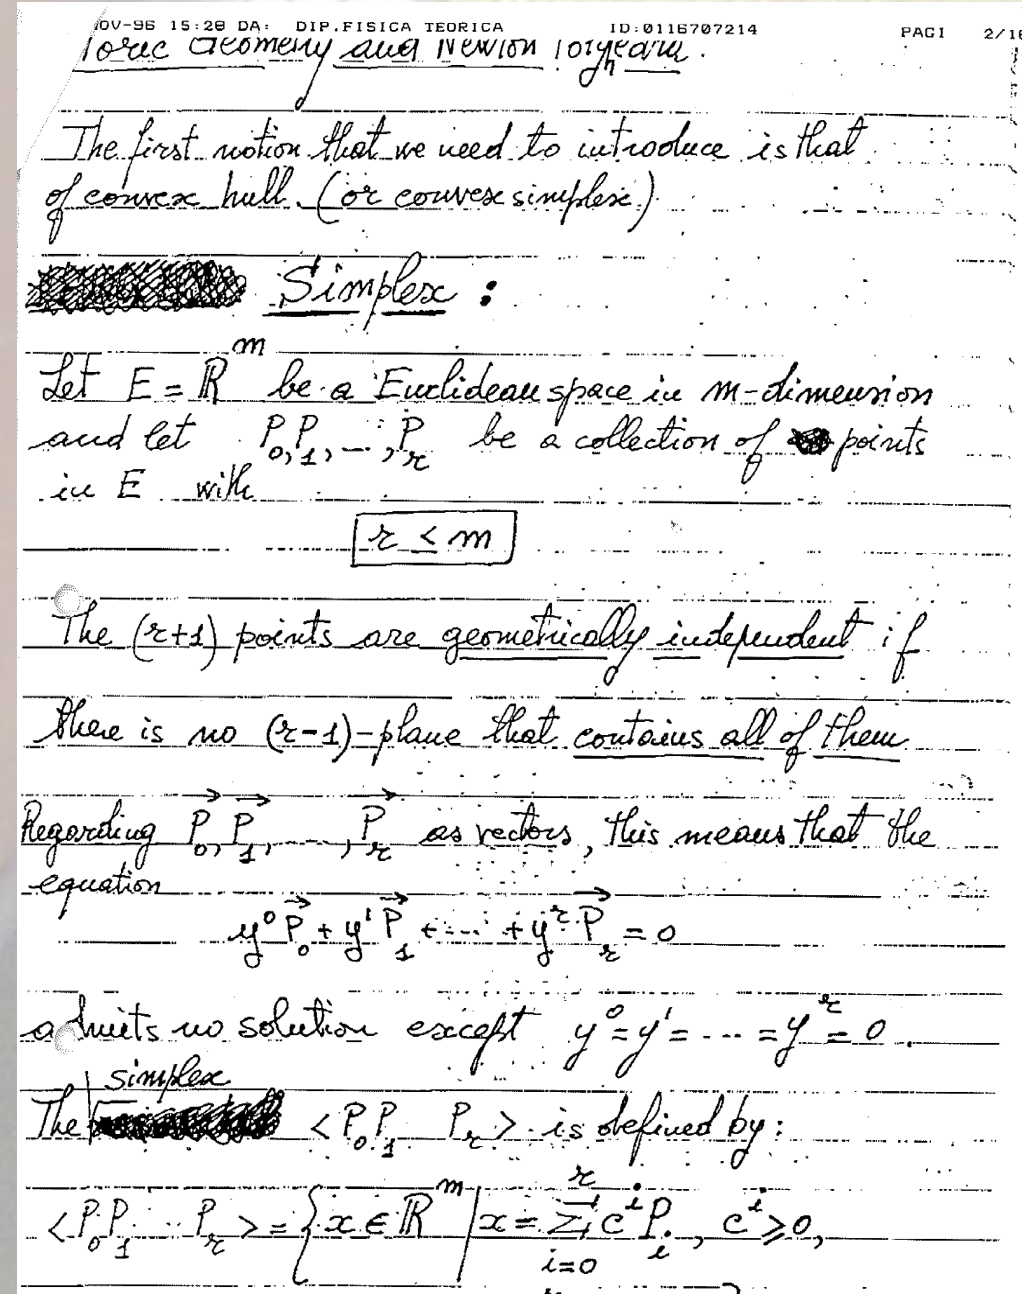 OV-96 15:28 DA: DIP.FISICA TEORICA ID:0116707214 PAGI 2/16
Toric Geometry and Newton Polyhedra.
The first notion that we need to introduce is that
of convex hull. (or convex simplex)
Simplex :
Let E = ℝ^m be a Euclidean space in m-dimension
and let P_0, P_1, ..., P_r be a collection of points
in E with
r < m
The (r+1) points are geometrically independent if
there is no (r-1)-plane that contains all of them
Regarding P⃗_0, P⃗_1, ....., P⃗_r as vectors, this means that the
equation
y^0 P⃗_0 + y^1 P⃗_1 + .... + y^r P⃗_r = 0
admits no solution except y^0 = y^1 = ... = y^r = 0.
simplex
The < P_0 P_1 P_r > is defined by:
< P_0 P_1 ... P_r > = { x ∈ ℝ^m | x = Σ_{i=0}^r c^i P_i, c^i ⩾ 0,